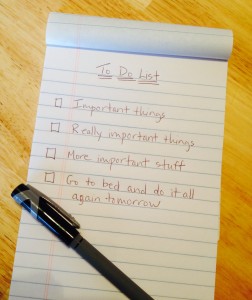 To Do List
Important things
Really important things
More important stuff
Go to bed and do it all
again tomorrow